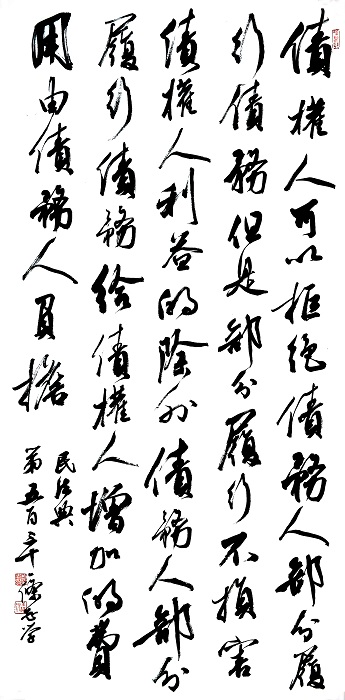 債權人可以拒絕債務人部分履
行債務但是部分履行不損害
債權人利益的除外債務人部分
履行債務給債權人增加的費
用由債務人負擔
民法典
第五百三十一